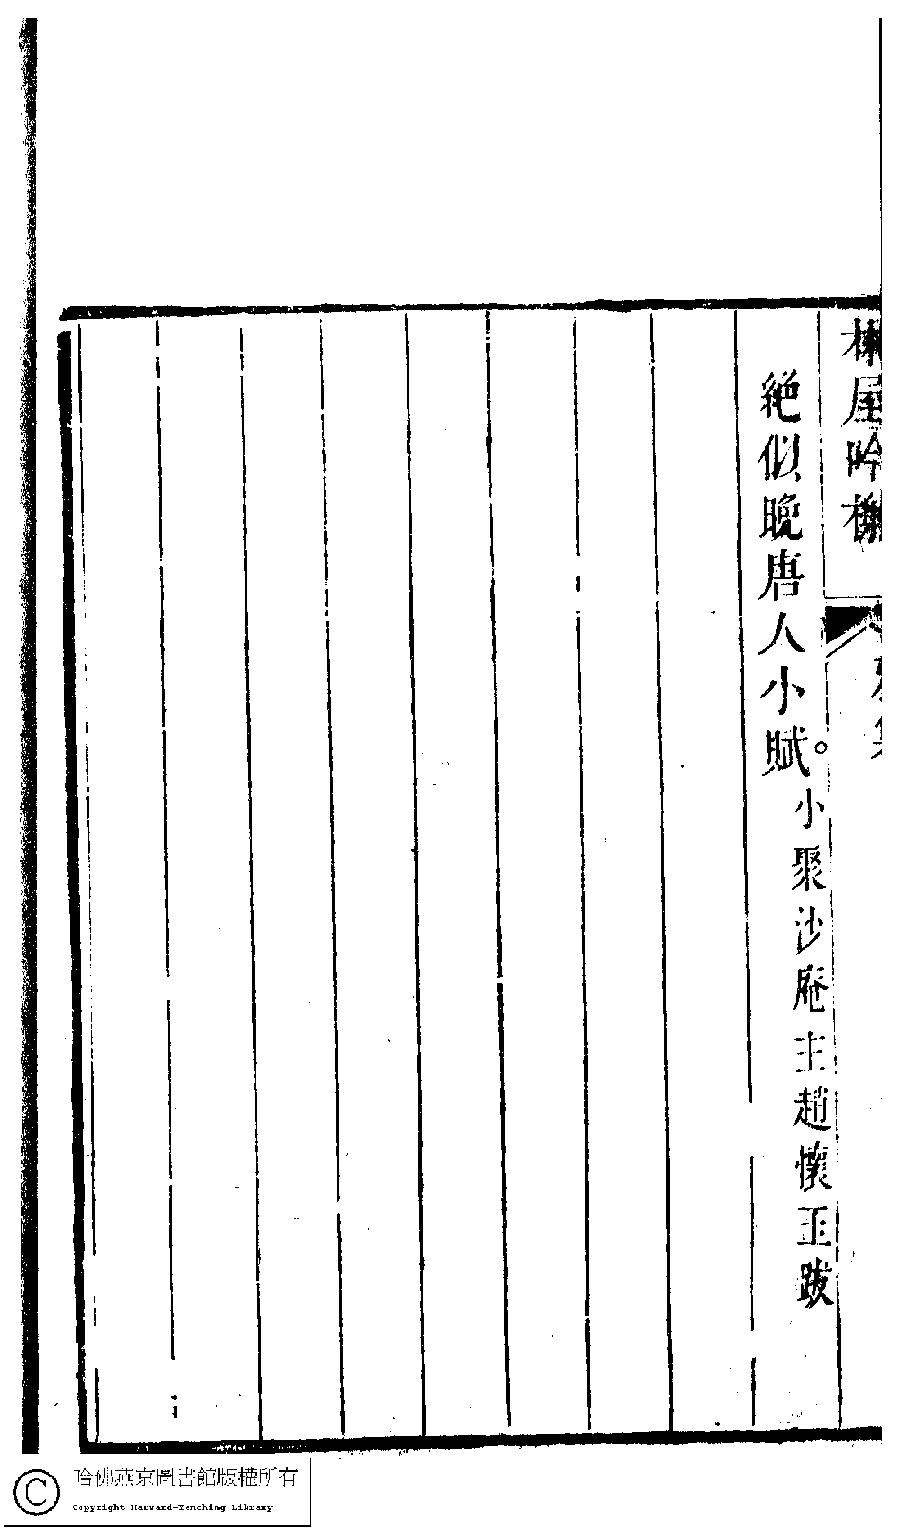 絶似晚唐人小賦。小聚沙庵主趙懷玉跋
屋吟
集
哈佛燕京圖書館版權所有
Copyright Harvard-Yenching Library